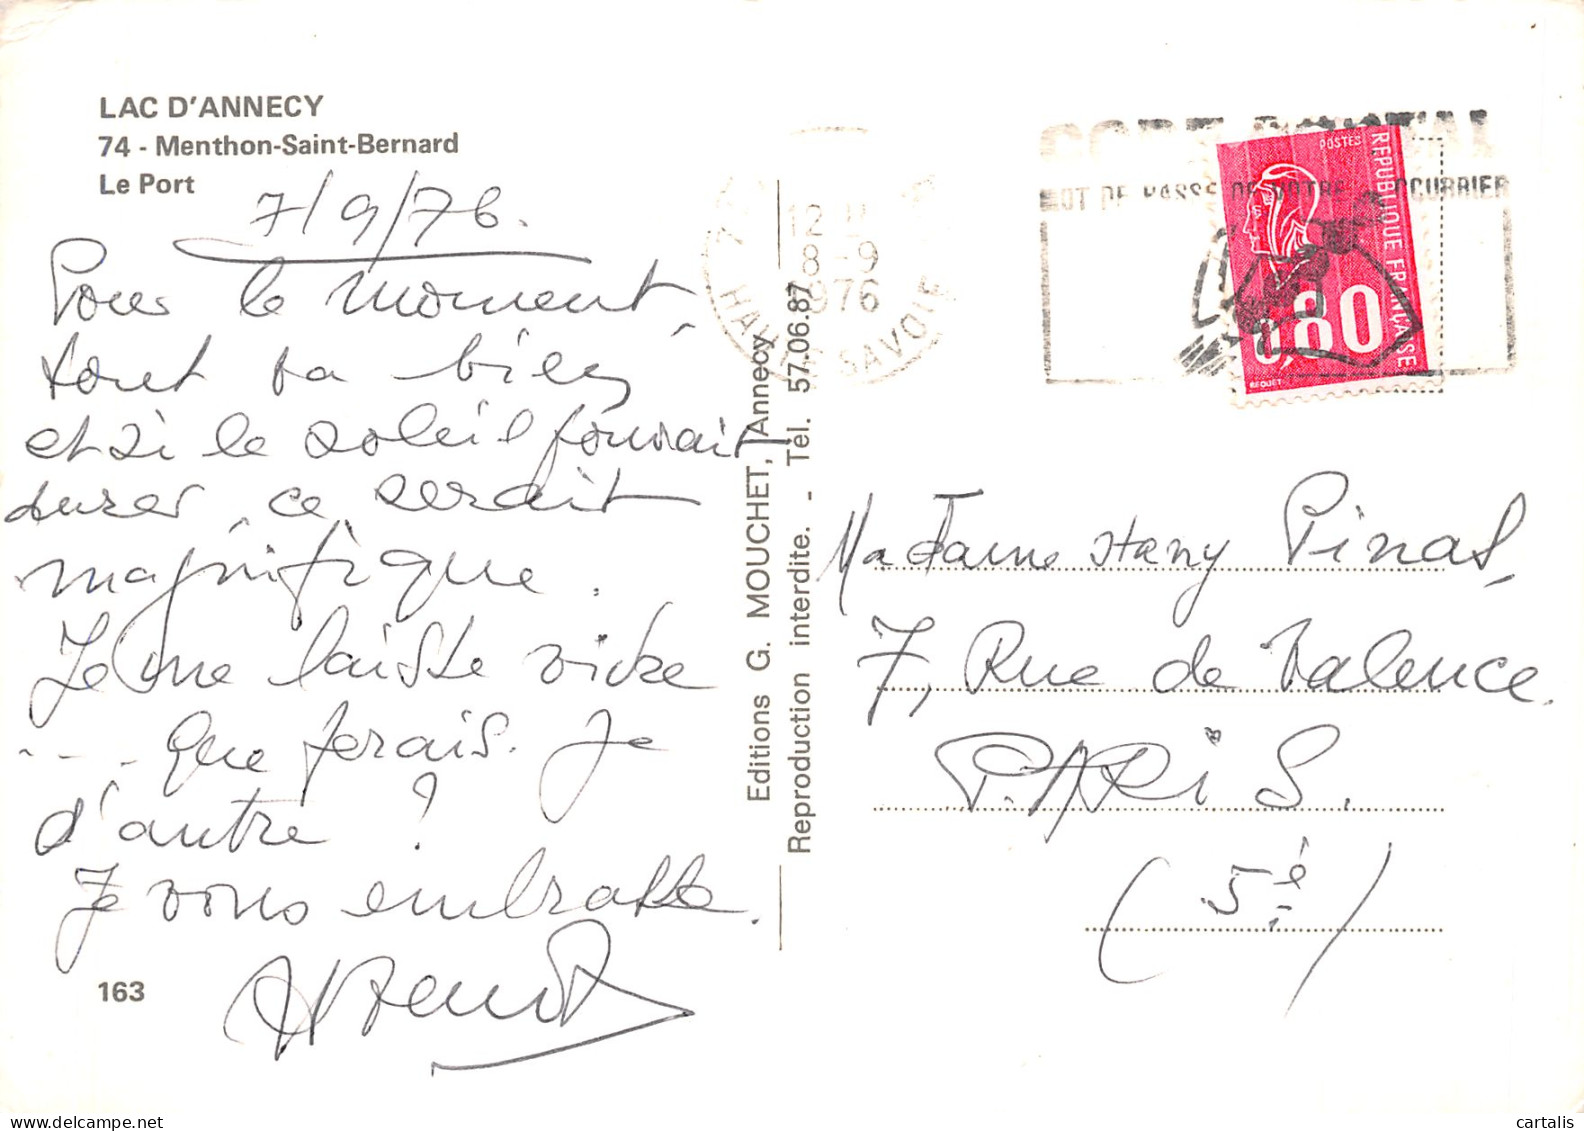 LAC D'ANNECY
74 - Menthon-Saint-Bernard
Le Port
7/9/76.
Pour le moment,
tout va bien
et si le soleil pouvait
durer, ce serait
magnifique.
Je me laisse vivre
... que ferais-je
d'autre ?
Je vous embrasse.
163
Editions G. MOUCHET, Annecy
Reproduction interdite. - Tél. 57.06.87
12 H
8-9
1976
HAUTE SAVOIE
CODE POSTAL
MOT DE PASSE DE VOTRE COURRIER
POSTES
REPUBLIQUE FRANÇAISE
0,80
BEQUET
Madame Stany Pinas,
7, Rue de Valence.
PARIS.
(5è)
cartalis